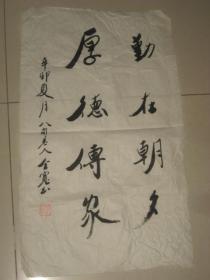 勤在朝夕
厚德傳家
辛卯夏月八旬老人金寬书